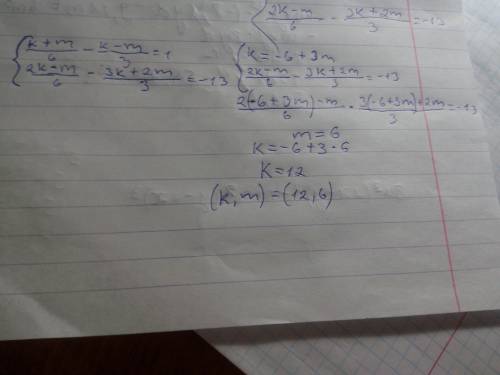 { (2k-m)/6 - (3k+2m)/3 = -13
{ (k+m)/6 - (k-m)/3 = 1
(2k-m)/6 - (3k+2m)/3 = -13
{ k = -6+3m
(2k-m)/6 - (3k+2m)/3 = -13
(2(-6+3m)-m)/6 - (3(-6+3m)+2m)/3 = -13
m = 6
k = -6+3·6
k = 12
(k,m) = (12,6)